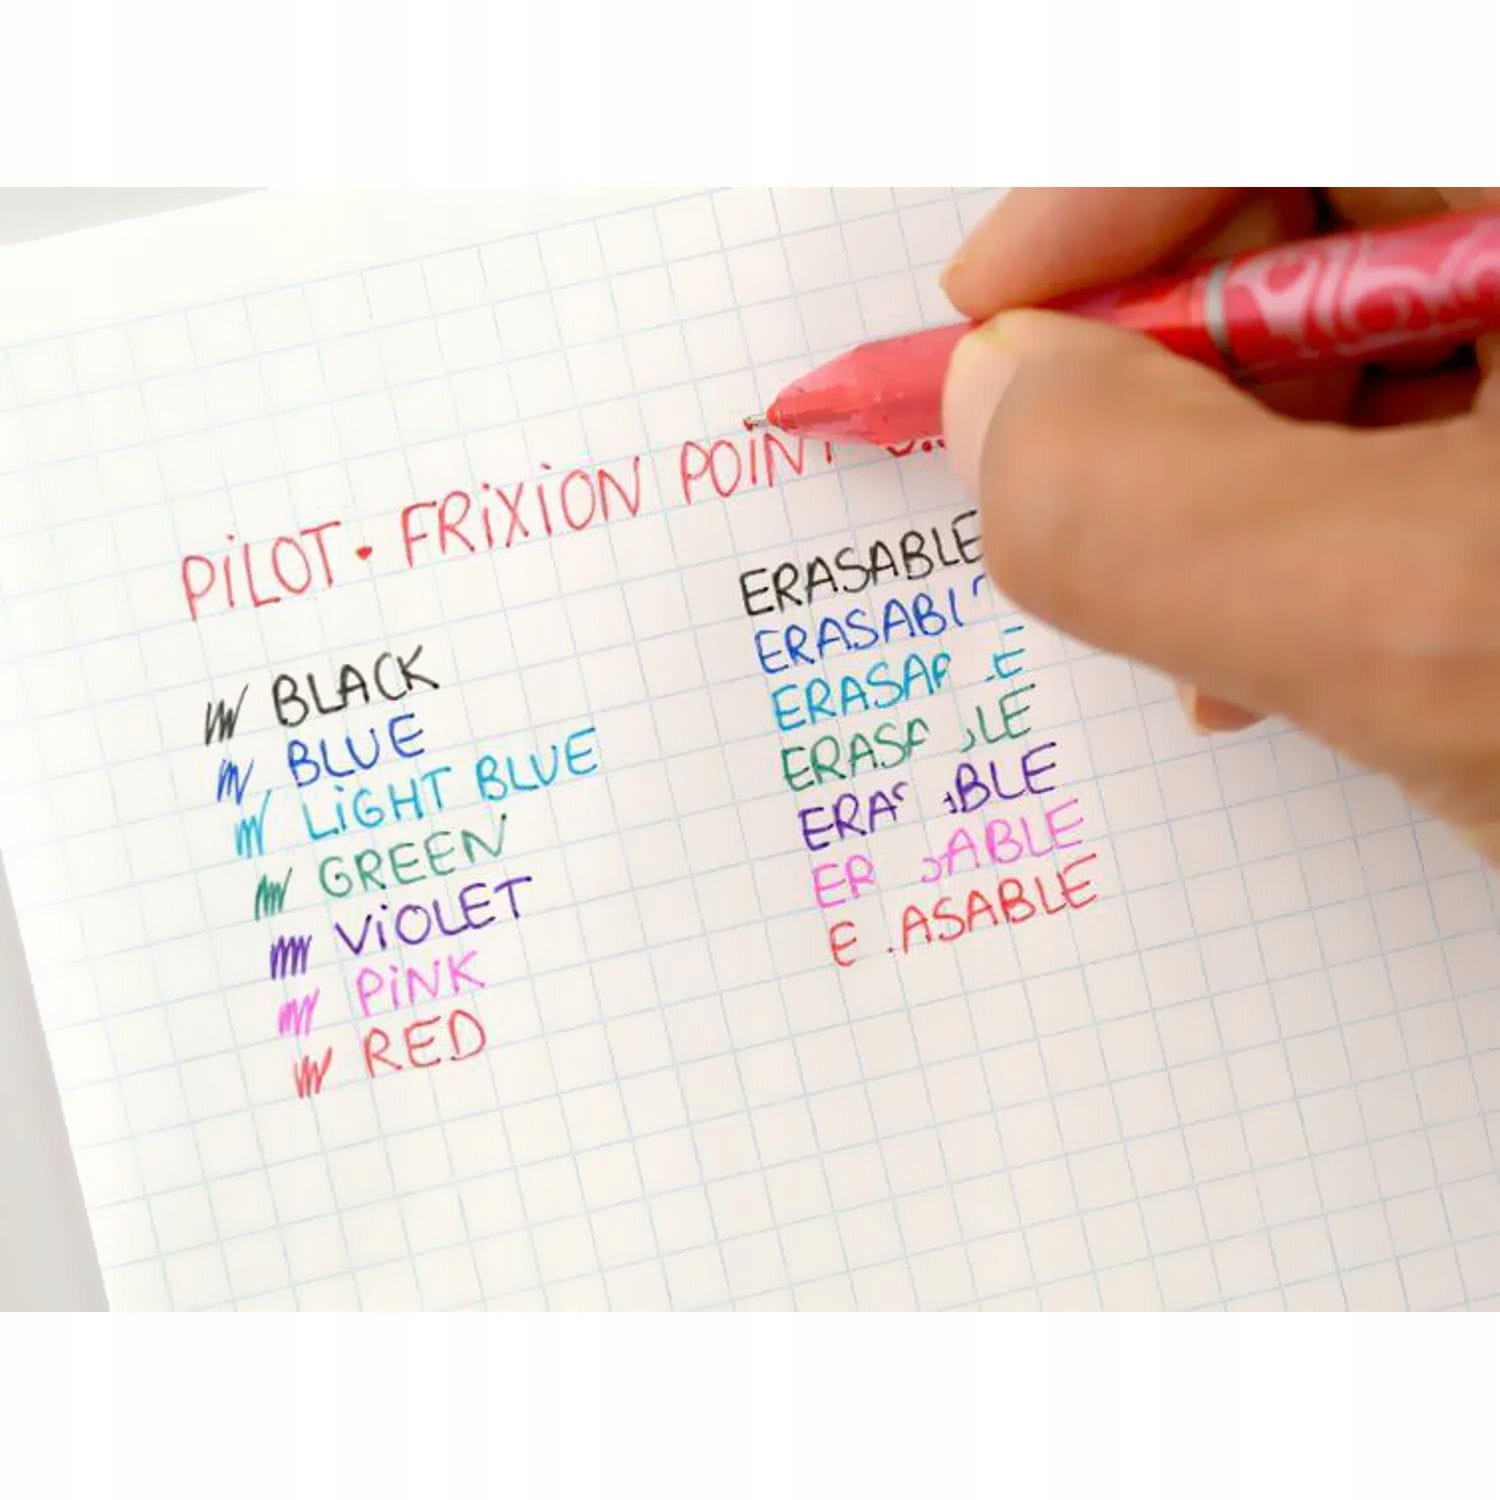 PiLOT • FRiXiON POiNT
BLACK
BLUE
LiGHT BLUE
GREEN
ViOLET
PiNK
RED
ERASABLE
ERASABL
ERASAB LE
ERASA BLE
ERAS ABLE
ER SABLE
E RASABLE